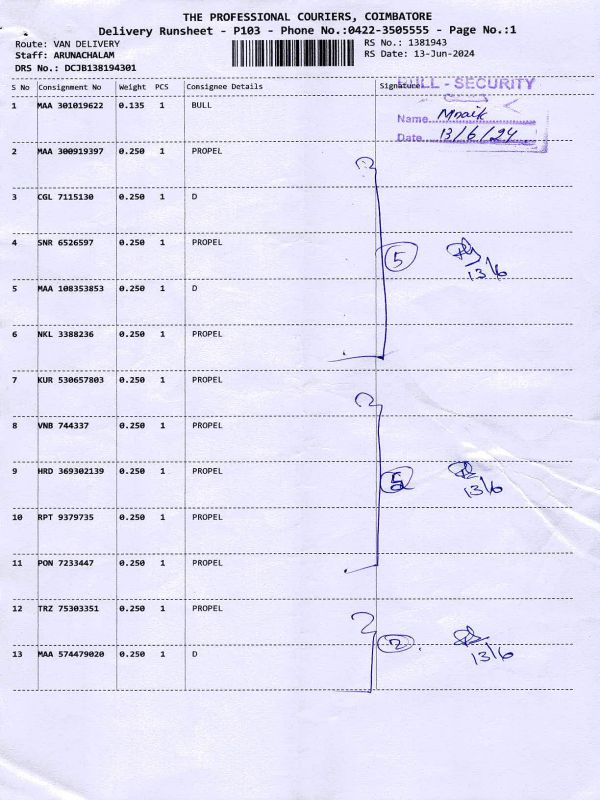 THE PROFESSIONAL COURIERS, COIMBATORE
Delivery Runsheet - P103 - Phone No.:0422-3505555 - Page No.:1
Route: VAN DELIVERY
Staff: ARUNACHALAM
DRS No.: DCJB138194301
RS No.: 1381943
RS Date: 13-Jun-2024
S No Consignment No Weight PCS Consignee Details Signature
BULL - SECURITY
1 MAA 301019622 0.135 1 BULL
Name
Date 13/6/24
2 MAA 300919397 0.250 1 PROPEL
3 CGL 7115130 0.250 1 D
4 SNR 6526597 0.250 1 PROPEL
5
13/6
5 MAA 108353853 0.250 1 D
6 NKL 3388236 0.250 1 PROPEL
7 KUR 530657803 0.250 1 PROPEL
8 VNB 744337 0.250 1 PROPEL
9 HRD 369302139 0.250 1 PROPEL
5
13/6
10 RPT 9379735 0.250 1 PROPEL
11 PON 7233447 0.250 1 PROPEL
12 TRZ 75303351 0.250 1 PROPEL
2
13/6
13 MAA 574479020 0.250 1 D